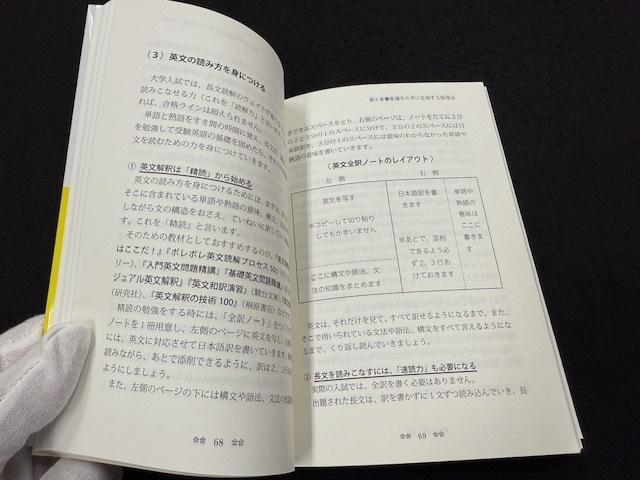 （3）英文の読み方を身につける
大学入試では、長文読解のウェイトが
読みこなせる力（これを「読解力」と言い
れば、合格ラインは超えられません。
単語と熟語をすき間の時間に覚え、英文
を勉強して受験英語の基礎を固めたら、それ
文を読むための力を身につけていきます。
① 英文解釈は「精読」から始める
英文の読み方を身につけるためには、まずは、
そこに含まれている単語や熟語の意味、構文、
しながら文の構造をおさえ、ていねいに訳してい
す。これを「精読」と言います。
そのための教材としておすすめするのが、『英文
はここだ！』『ポレポレ英文読解プロセス50』
リー）、『入門英文問題精講』『基礎英文問題精講』
ジュアル英文解釈』『英文和訳演習』（駿台文庫）
（研究社）、『英文解釈の技術100』（桐原書店）など
精読の勉強をする時には、「全訳ノート」をつく
ノートを1冊用意し、左側のページに英文を写し、右側
には、英文に対応させて日本語訳を書いていきます。解
読みながら、あとで添削できるように、訳は2、3
ようにしましょう。
また、左側のページの下には構文や語法、文法の知識
68
第6章●看護系大学に合格する勉強法
きできるスペースをとり、右側のページは、ノートをたてに3分
の2と3分の1のスペースに分けて、3分の2のスペースには日
本語訳を、3分の1のスペースには意味のわからなかった単語や
熟語の意味を書いていきます。
〈英文全訳ノートのレイアウト〉
左 側
右 側
英文を写す
※コピーして切り貼り
してもかまいません
ここに構文や語法、文
法の知識をまとめます
日本語訳を書
きます
※あとで、添削
できるよう必
ず2、3行あ
けておきます
単語や
熟語の
意味は
ここに
書きま
す
英文は、それだけを見て、すべて訳せるようになるまで、また、
そこで用いられている文法や語法、構文をすべて言えるようにな
るまで、くり返し読んでいきましょう。
② 長文を読みこなすには、「速読力」も必要になる
実際の入試では、全訳を書く必要はありません。
出題された長文は、訳を書かずに1文ずつ読み込んでいき、長
69